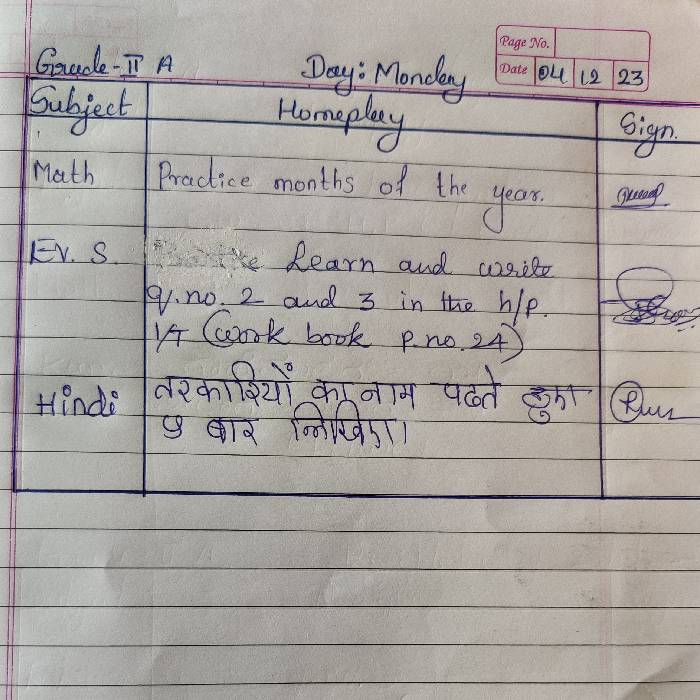 Page No.
Grade-II A Day: Monday Date 04 12 23
Subject Homeplay Sign.
Math Practice months of the year.
EV. S. Learn and write
q.no. 2 and 3 in the h/p.
(work book p.no. 24)
Hindi तरकारियों का नाम पढते हुए
5 बार लिखिए।